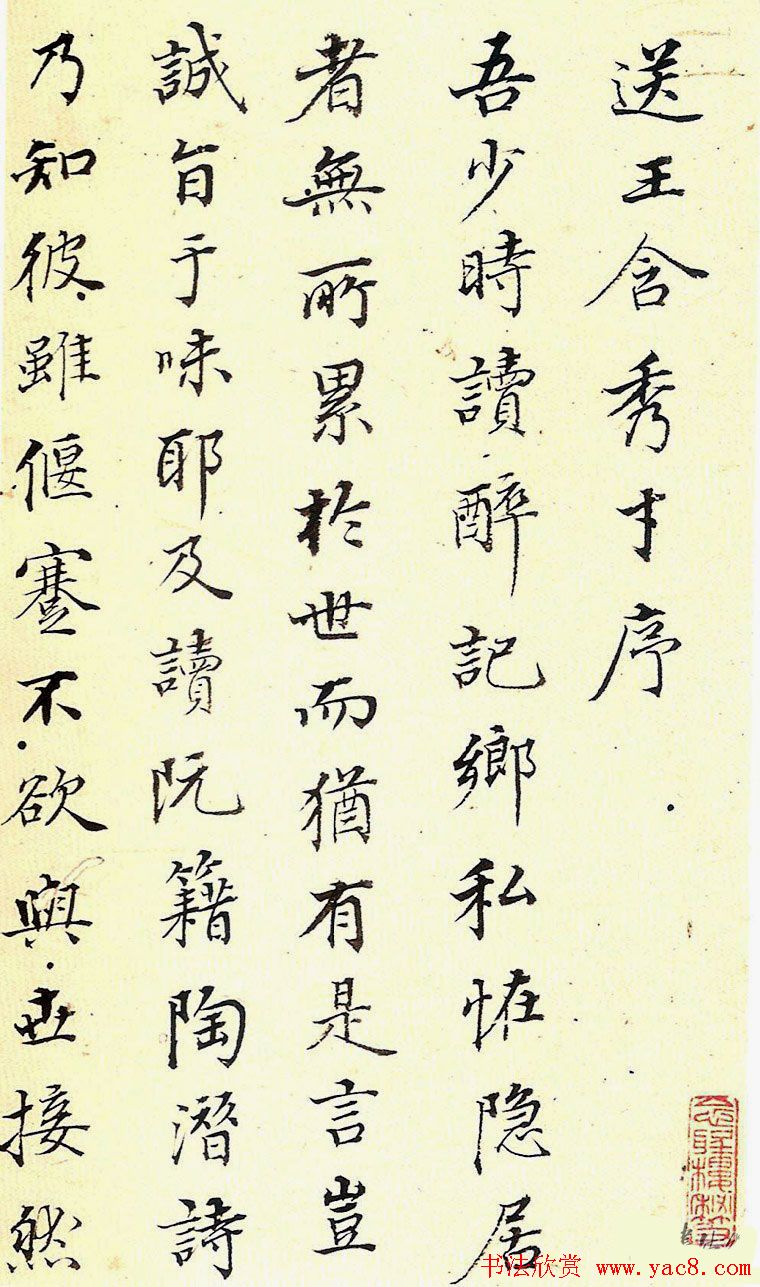 送王含秀才序
吾少時讀醉記鄉私恠隐居
者無所累於世而猶有是言豈
誠旨于味耶及讀阮籍陶潛詩
乃知彼雖偃蹇不欲與世接然
书法欣赏 www.yac8.com